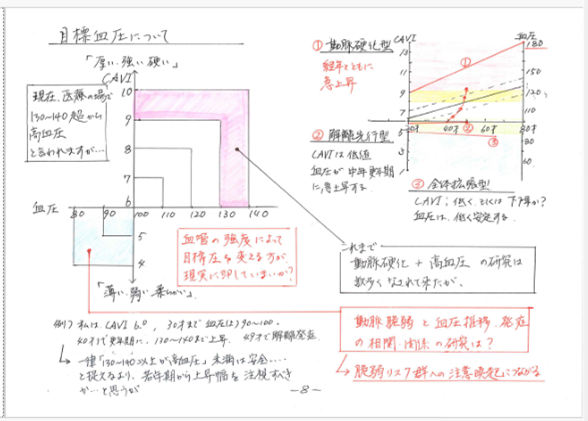 目標血圧について
「厚い・強い・硬い」
CAVI
現在、医療の場で
130~140超から
高血圧
と言われますが…
10
9
8
7
血圧
80
90
100
110
120
130
140
5
4
「薄い・弱い・柔らかい」
血管の強度によって
目標圧を変える方が
現実に即していまいか?
例) 私は CAVI 6.0 , 30才まで血圧は) 90~100.
40才で更年期に、130~140まで上昇. 49才で解離発症.
→ 一律「130~140以上が高血圧」未満は安全……
と捉えるより、若年期から上昇幅を注視すべき
か…と思うが
① 動脈硬化型
経年とともに
急上昇
② 解離先行型
CAVIは低値
血圧が中年更年期
に急上昇する.
CAVI
血圧
13
11
9
7
5
3
1
180
150
120
110
80
60
40才
60才
80才
①
②
③
③ 全体拡張型
CAVI; 低く、とくには下降か?
血圧は、低く安定する.
これまで
動脈硬化 + 高血圧 の研究は
数多くなされて来たが、
動脈脆弱と血圧推移・発症
の相関・関係の研究は?
→ 脆弱リスク群への注意喚起につながる
-8-